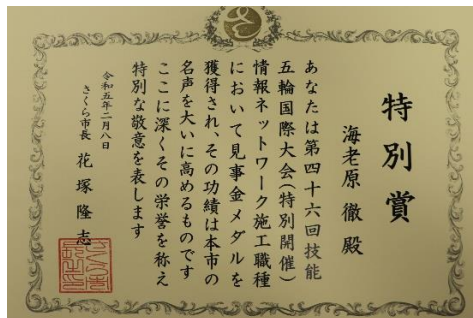 特別賞
海老原 徹 殿
あなたは第四十六回技能
五輪国際大会(特別開催)
情報ネットワーク施工職種
において見事金メダルを
獲得され、その功績は本市の
名声を大いに高めるものです
ここに深くその栄誉を称え
特別な敬意を表します
令和五年二月八日
さくら市長 花塚隆志